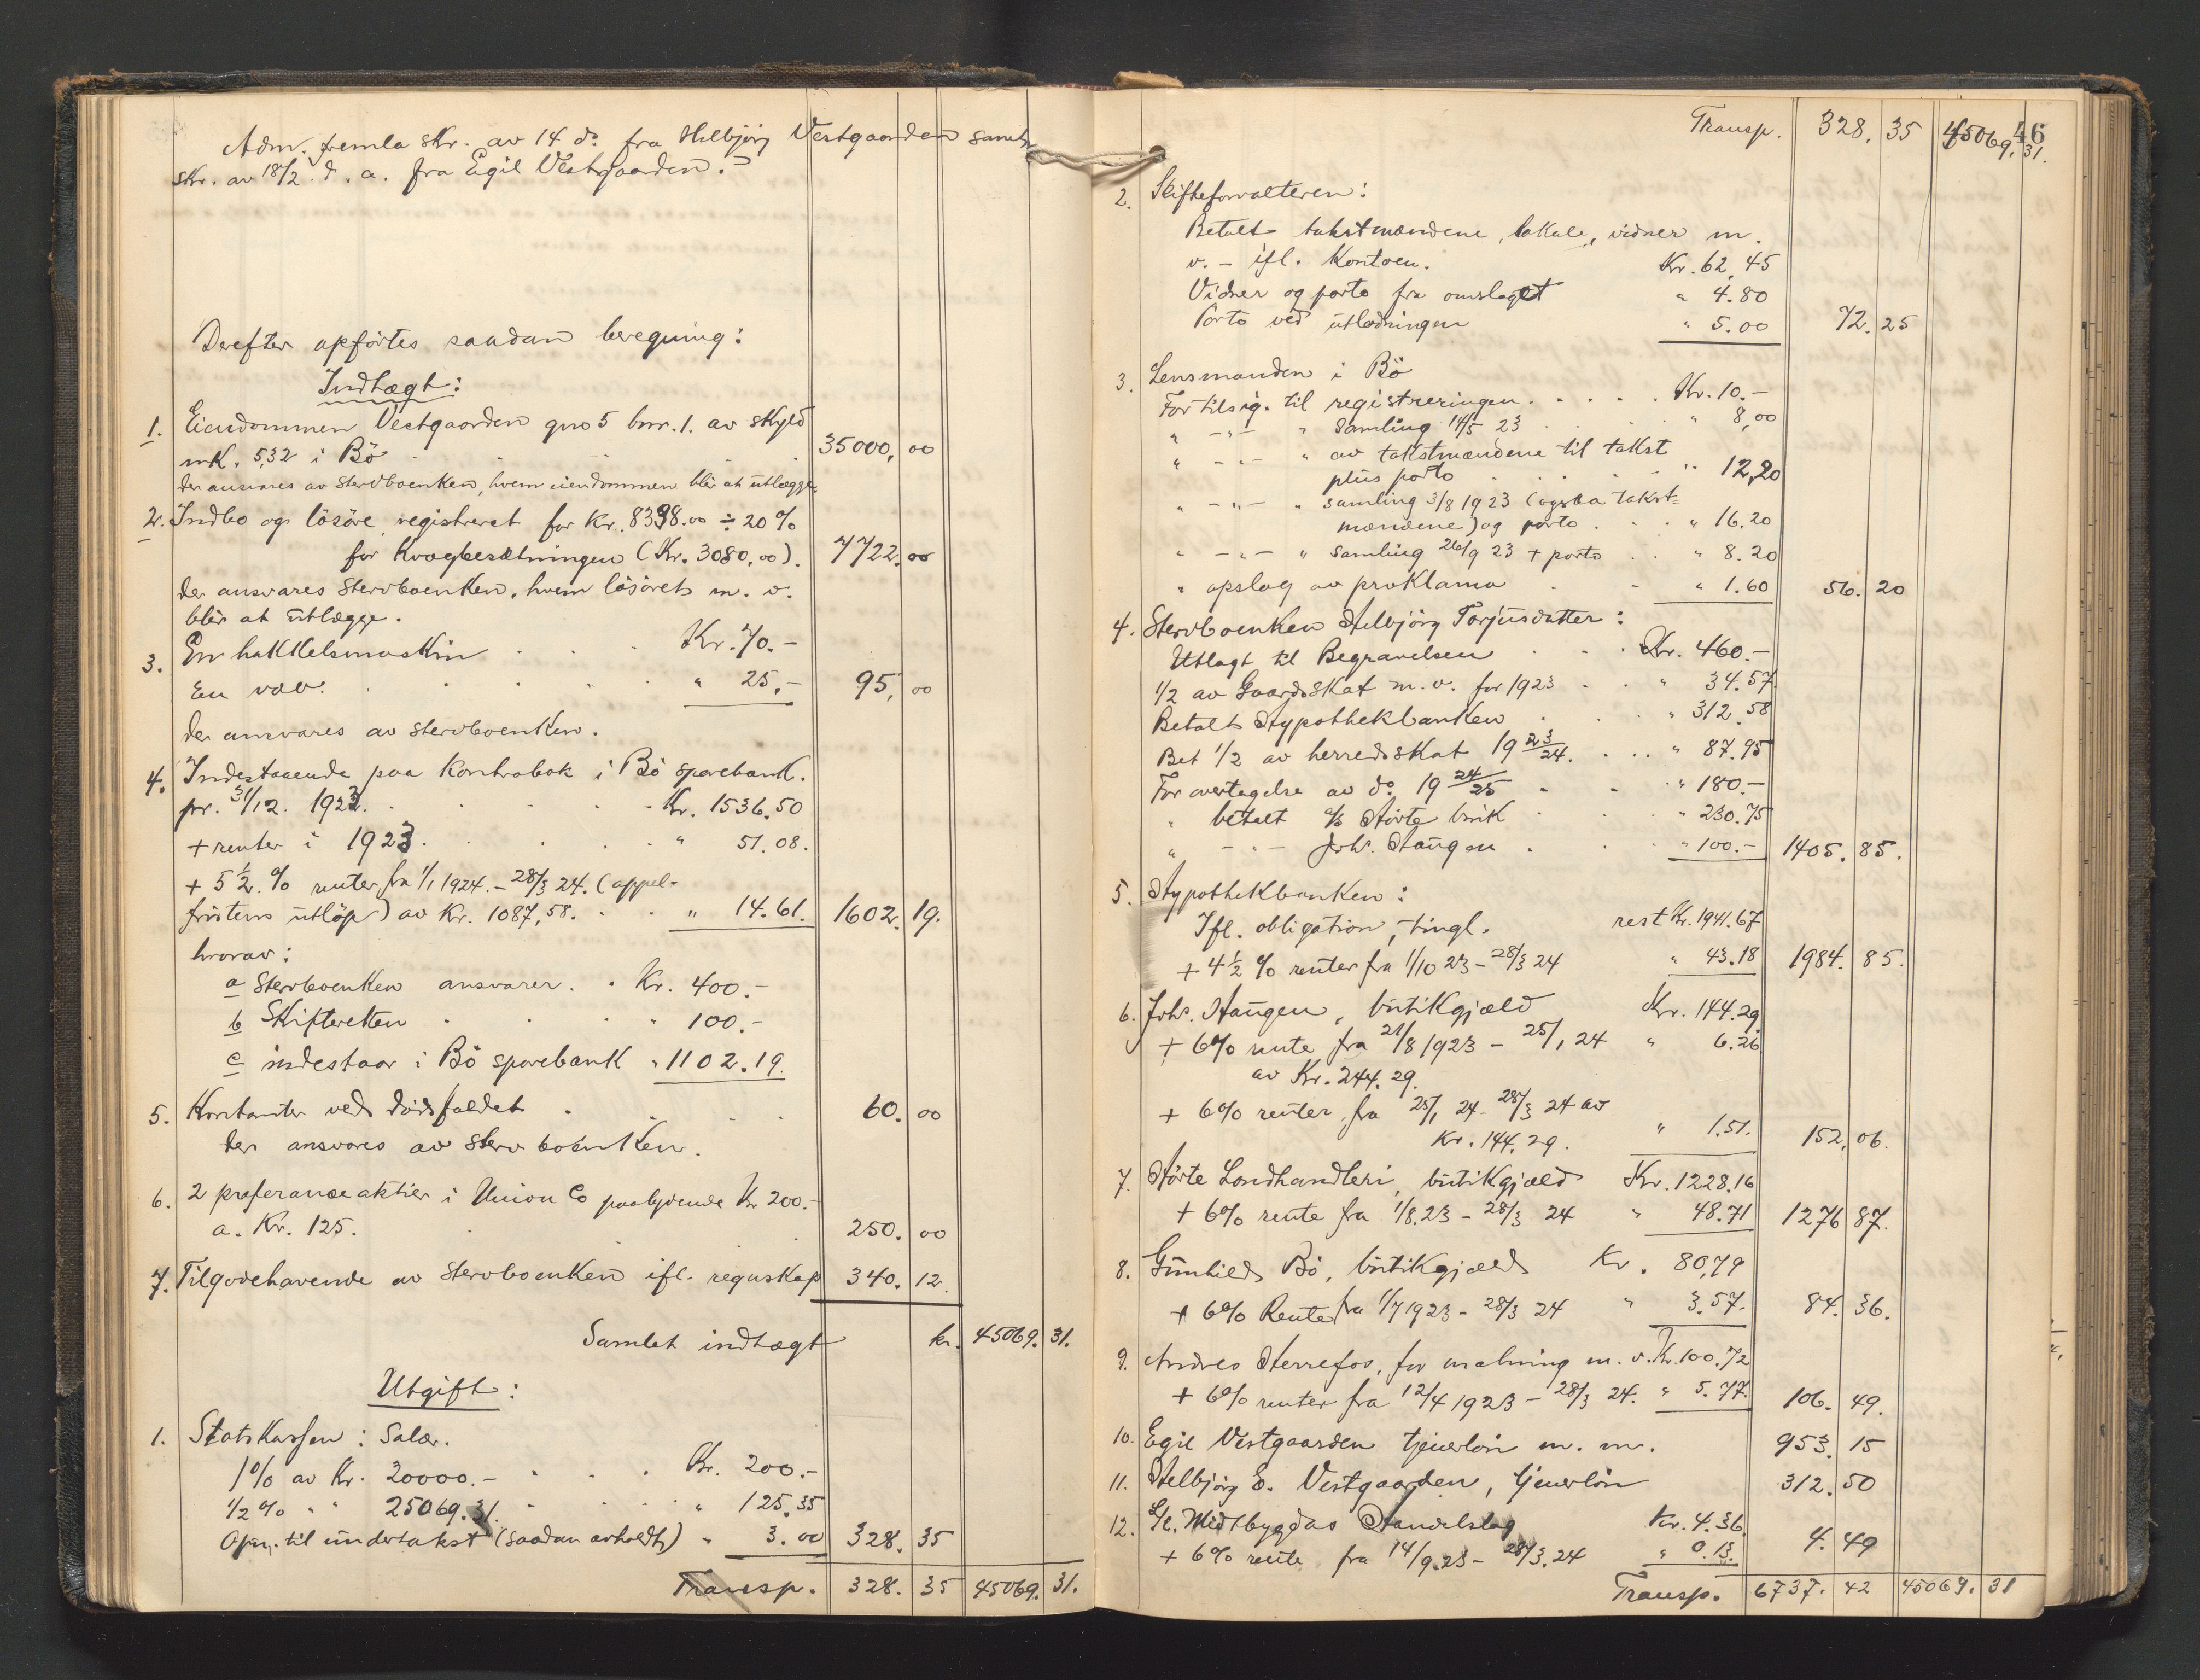 Adm. fremla skr. av 14 ds. fra Helbjørg Vestgaarden samt
skr. av 18/2 d. a. fra Egil Vestgaarden.
Derefter opførtes saadan beregning:
Indtægt:
1. Eiendommen Vestgaarden gno 5 bnr. 1. av skyld
mk. 5,32 i Bø . . . 35000,00
der ansvares av stervboenken, hvem eiendommen blir at utlægge.
2. Indbo og løsøre registreret for Kr. 8338.00 ÷ 20%
for Kvægbesætningen (Kr. 3080,00). 7722.00
der ansvares stervboenken, hvem løsøret m. v.
blir at utlægge.
3. En hakkelsmaskin . . . Kr. 70.-
En væv. . . . . " 25,- 95,00
der ansvares av stervboenken.
4. Indestaaende paa Kontrabok i Bø sparebank.
pr. 31/12. 1922. . . . Kr. 1536.50
+ renter i 1923. . . . " 51.08.
+ 5 1/2 % renter fra 1/1 1924. - 28/3 24. (appel-
fristens utløp) av Kr. 1087,58. . . " 14.61. 1602.19.
hvorav:
a Stervboenken ansvarer. . Kr. 400.-
b Skifteretten . . . " 100.-
c indestaar i Bø sparebank " 1102.19.
5. Kontanter ved dødsfaldet . . . 60.00
der ansvares av stervboenken.
6. 2 præferanceaktier i Union Co paalydende Kr. 200.-
a. Kr. 125. . . 250.00
7. Tilgodehavende av stervboenken ifl. regnskap 340.12.
Samlet indtægt kr. 45069.31.
Utgift:
1. Statskassen: Salær.
1% av Kr. 20000.- . . . Kr. 200.-
1/2 % " " 25069.31. . . . " 125.35
Opn. til undertakst (saadan avholdt) " 3.00 328.35
Transp. 328.35 45069.31.
46
Transp. 328.35 45069.31.
2. Skifteforvalteren:
Betalt takstmændene, lokale, vidner m.
v. - ifl. Kontoen. Kr. 62,45
Vidner og porto fra omslaget " 4.80
Porto ved utlodningen " 5.00 72.25
3. Lensmanden i Bø
For tilsig. til registreringen . . . . . Kr. 10.-
" -"- " Samling 14/5 23 . . " 8,00
" -"- " av takstmændene til takst
plus porto . . . . " 12,20
" -"- " samling 3/8 1923 (ogsaa takst-
mændene) og porto . . . " 16.20
" -"- " samling 26/9 23 + porto . . " 8.20
" opslag av proklama . . " 1.60 56.20
4. Stervboenken Helbjørg Torjusdatter:
Utlagt til Begravelsen . . . Kr. 460.-
1/2 av Gaardsskat m. v. for 1923 . . " 34.57.
Betalt Hypothekbanken . . . " 312.58
Bet 1/2 av herredsskat 19 23/24. . . . " 87.95
For overtagelse av do 19 24/25 . . " 180.-
" betalt % Hørte butik . . " 230.75
" -"- Joh. Haugen . . " 100.- 1405.85.
5. Hypothekbanken:
Ifl. obligation, tingl. rest Kr. 1941.67
+ 4 1/2 % renter fra 1/10 23 - 28/3 24 " 43.18 1984.85.
6. Joh. Haugen, butikgjæld Kr. 144.29.
+ 6% rente fra 21/8 1923 - 25/1 24 " 6.26
av Kr. 244.29.
+ 6% renter fra 25/1 24 - 28/3 24 av
Kr. 144.29. " 1.51. 152.06.
7. Hørte Landhandleri, butikgjæld Kr. 1228.16
+ 6% rente fra 1/8.23 - 28/3 24 " 48.71 1276 87.
8. Gunhild Bø, butikgjæld Kr. 80,79
+ 6% Rente fra 1/7 1923 - 28/3 24 " 3.57. 84.36.
9. Andres Herrefos, for maling m. v. Kr. 100.72
+ 6% renter fra 12/4 1923 - 28/3 24. " 5.77. 106.49.
10. Egil Vestgaarden tjenerløn m. m. 953.15
11. Helbjørg E. Vestgaarden, tjenerløn 312.50
12. L/L. Midtbygdas Handelslag Kr. 4.36.
+ 6% rente fra 14/9.23 - 28/3.24 " 0.13. 4.49
Transp. 6737.42 45069.31